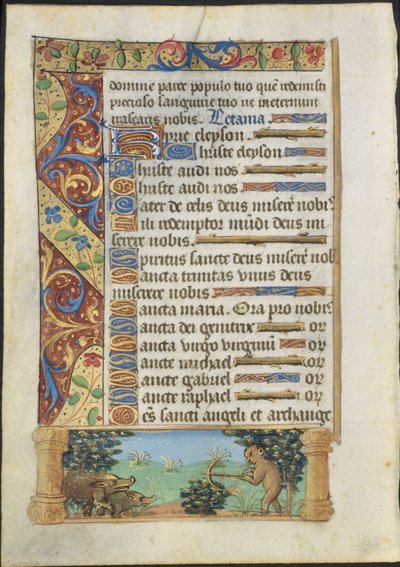 domine parce populo tuo quē redemisti
precioso sanguine tuo ne ineternum
irascaris nobis. Letania.
Kyrie eleyson.
Christe eleyson.
Christe audi nos
Christe audi nos
Pater de celis deus miserē nobis
Fili redemptor mūdi deus mi
serere nobis.
Spiritus sancte deus miserē nob
Sancta trinitas vnus deus
miserere nobis
Sancta maria. Ora pro nobis
Sancta dei genitrix or
Sancta virgo virginū or
Sancte michael or
Sancte gabriel or
Sancte raphael or
Oēs sancti angeli et archange